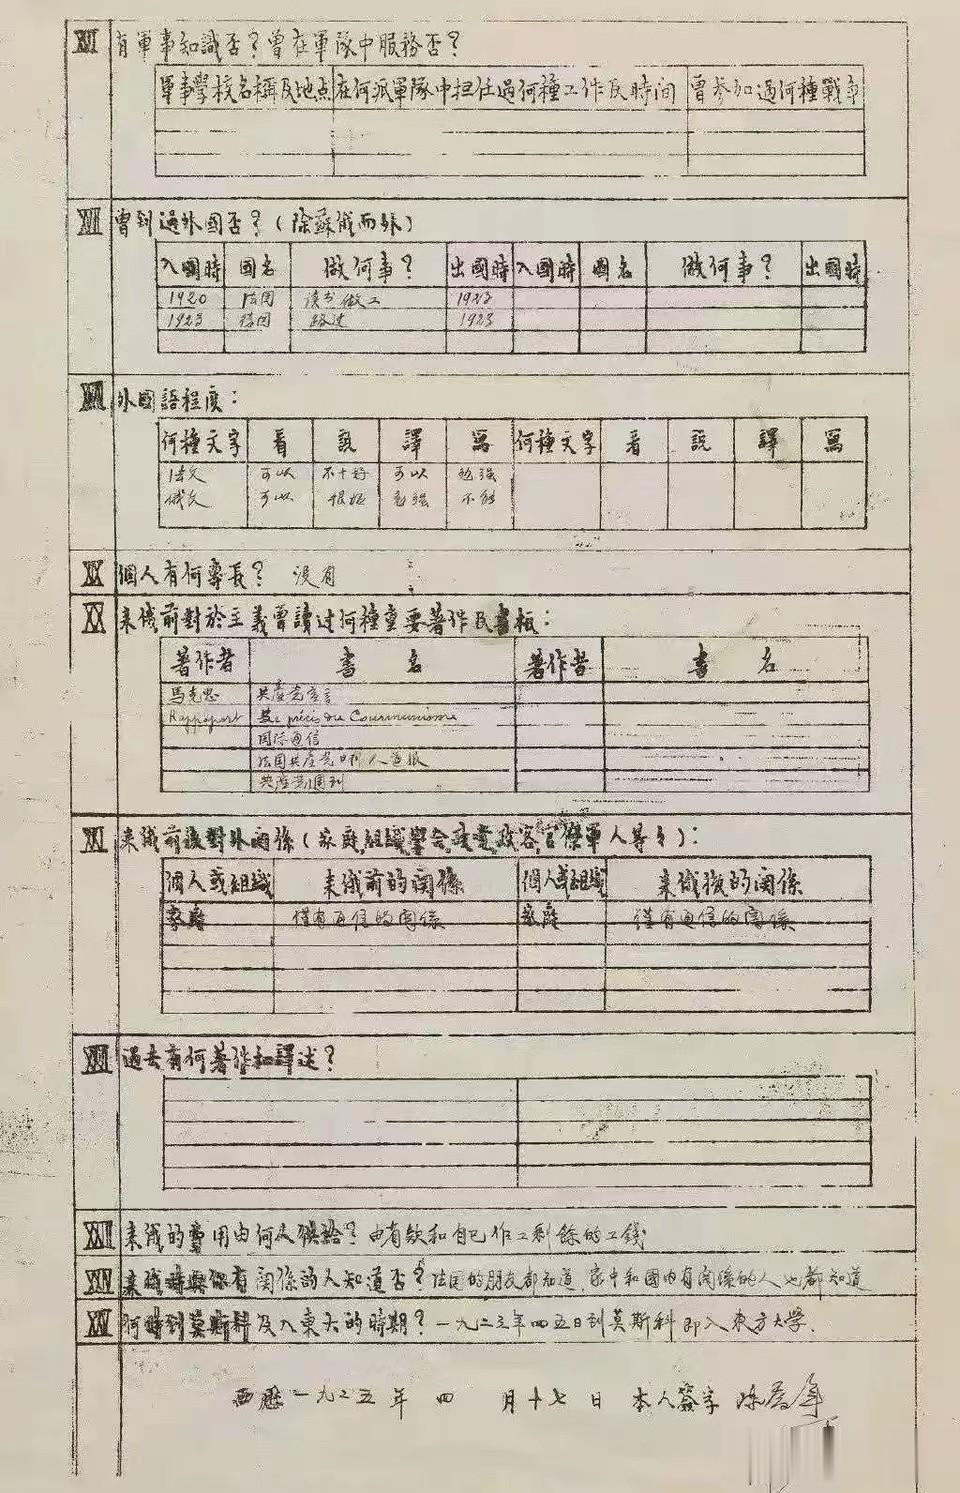 XVI 有軍事知識否？曾在軍隊中服務否？
軍事學校名稱及地点 在何派軍隊中担任过何種工作及時间 曾参加過何種戰爭
XVII 曾到過外國否？(除蘇俄而外)
入國時 國名 做何事？ 出國時 入國時 國名 做何事？ 出國時
1920 法国 读书做工 1923
1923 德国 路过 1923
XVIII 外國語程度：
何種文字 看 説 譯 寫 何種文字 看 説 譯 寫
法文 可以 不十好 可以 勉强
俄文 可以 很坏 勉强 不能
XIX 個人有何專長？ 没有
XX 来俄前對於主義曾讀过何種重要著作及書板：
著作者 書名 著作者 書名
馬克思 共產党宣言
Rappoport précis du Communisme
国际通信
法国共產党 人道报
共產党週刊
XXI 来俄前後對外関係(家庭,組織,學會,政党,政客,官僚,軍人等等)：
個人或組織 来俄前的関係 個人或組織 来俄後的関係
家庭 僅有通信的関係 家庭 僅有通信的関係
XXII 過去有何著作和譯述？
XXIII 来俄的費用由何人供給？ 由有欸和自己作工剩餘的工錢
XXIV 来俄時與你有関係的人知道否？ 法国的朋友都知道,家中和國内有関係的人也都知道
XXV 何時到莫斯科及入東大的時期？ 一九二三年四五日到莫斯科即入東方大学.
西歷一九二五年四月十七日 本人簽字 陈乔年